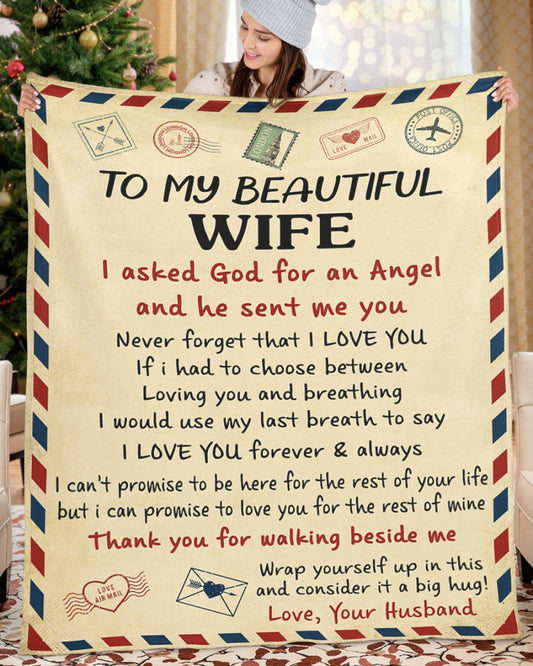 LONDON
LONDON
LOVE MAIL
POST OFFICE
POST OFFICE
TO MY BEAUTIFUL
WIFE
I asked God for an Angel
and he sent me you
Never forget that I LOVE YOU
If i had to choose between
Loving you and breathing
I would use my last breath to say
I LOVE YOU forever & always
I can't promise to be here for the rest of your life
but i can promise to love you for the rest of mine
Thank you for walking beside me
Wrap yourself up in this
and consider it a big hug!
Love, Your Husband
LOVE
AIR MAIL